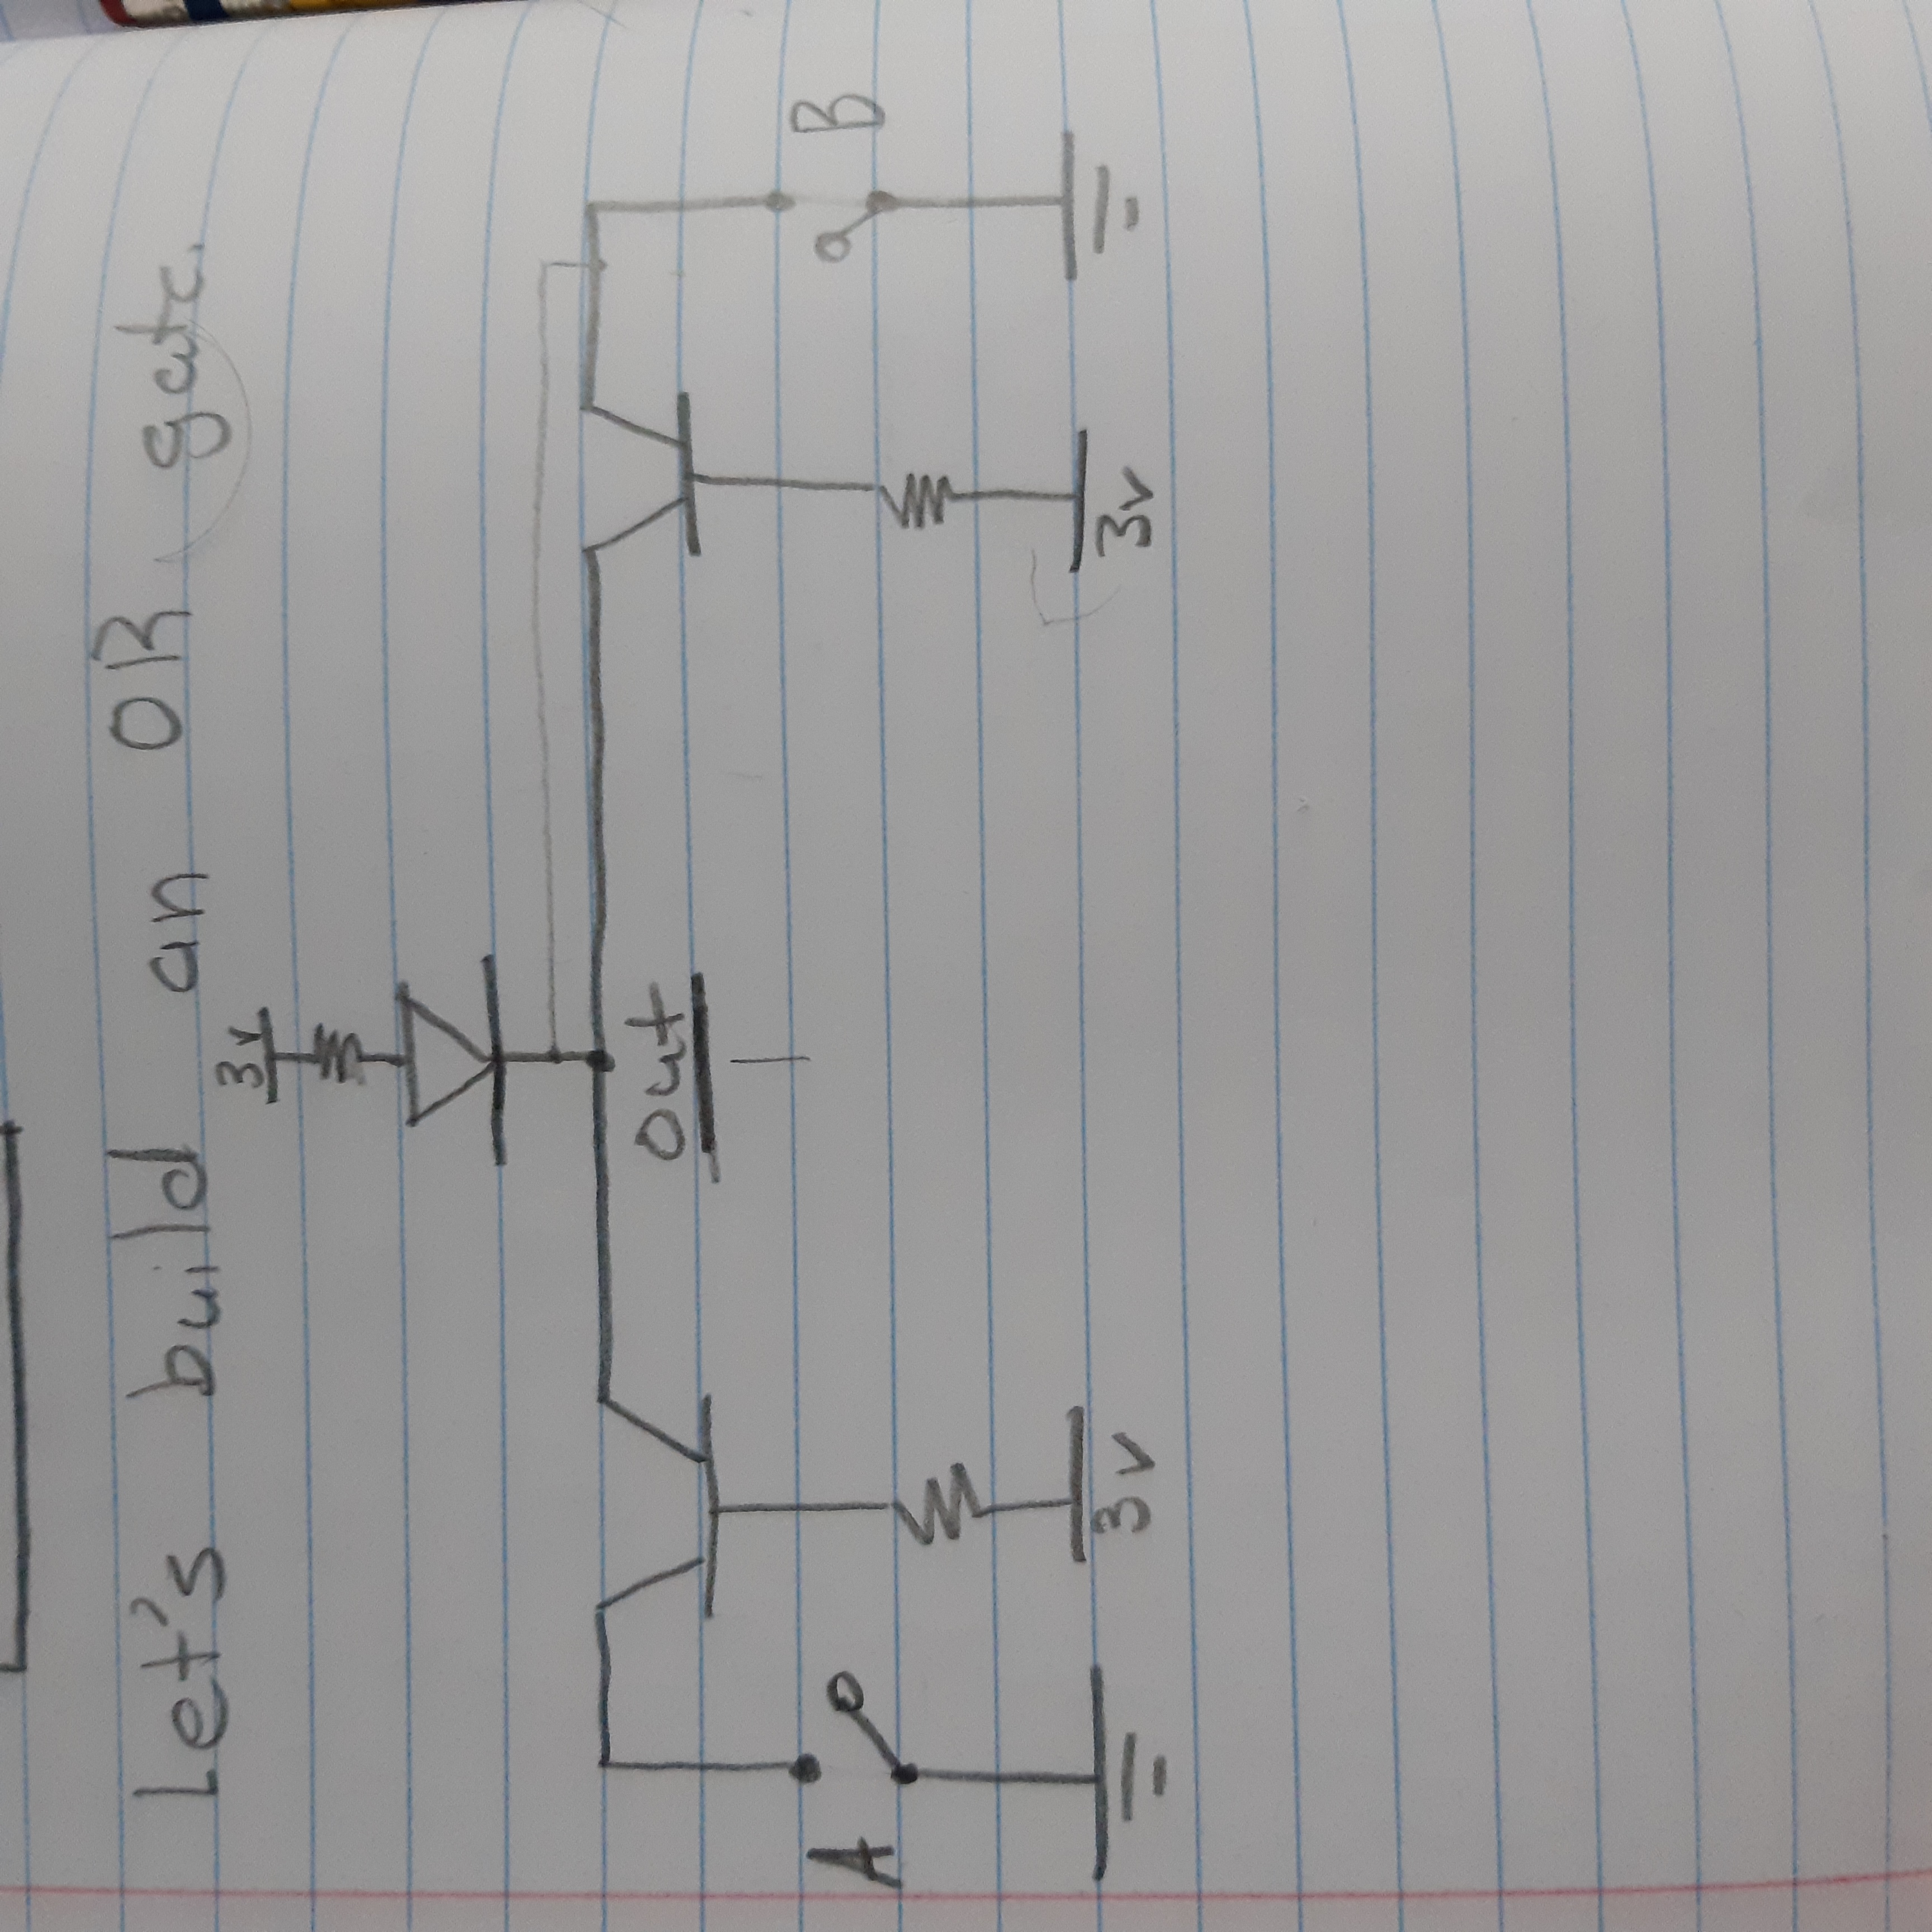 Let's build an OR gate.
3v
out
A
B
3v
3v